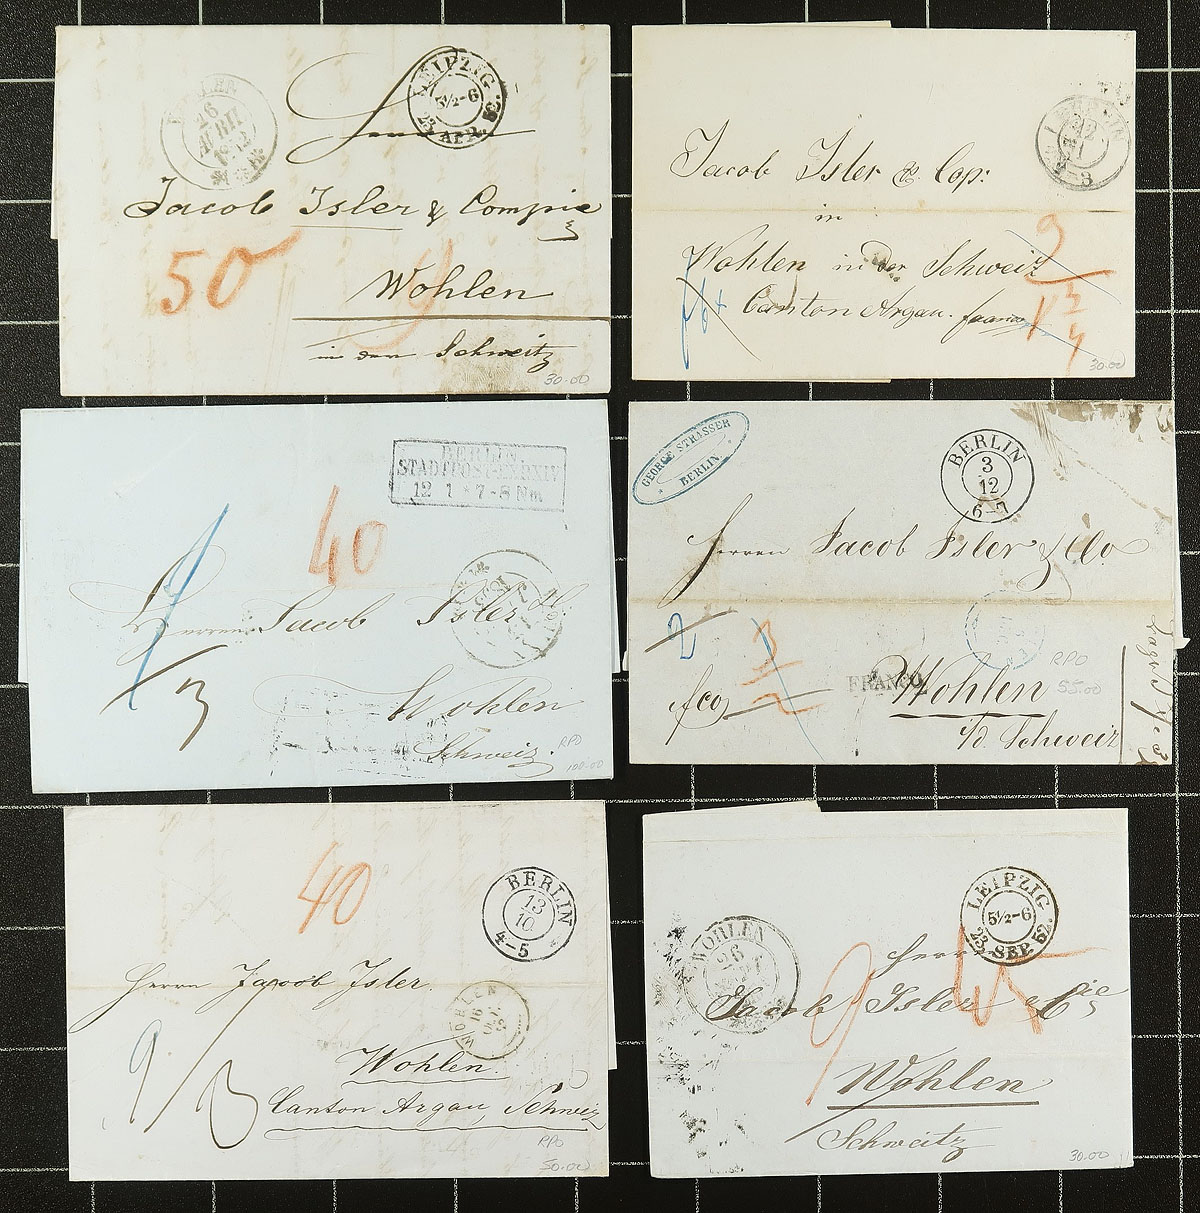 WOHLEN
26
LEIPZIG
5½-6
23 APR. 52.
Jacob Isler & Compie
50
9
Wohlen
in der Schweitz
30.00
Jacob Isler & Cop:
in
Wohlen in der Schweiz
Canton Argau. franco
9
2-3
30.00
BERLIN
STADTPOST-EXP.XIV
12 1 * 7-8 Nm
40
Herren Jacob Isler
Wohlen
Schweiz.
3
RPO
100.00
GEORGE STRASSER
BERLIN.
BERLIN
3
12
6-7
Herren Jacob Isler & Co.
2
3
2
fco
FRANCO.
Wohlen
i/d. Schweiz
RPO
55.00
40
BERLIN
13
10
4-5
Herrn Jacob Isler
WOHLEN
16
9
3
Wohlen.
Canton Argau, Schweiz
RPO
50.00
WOHLEN
26
LEIPZIG
5½-6
23 SEP. 52.
Herrn
45
Jacob Isler & Cie
9
Wohlen
Schweitz
30.00